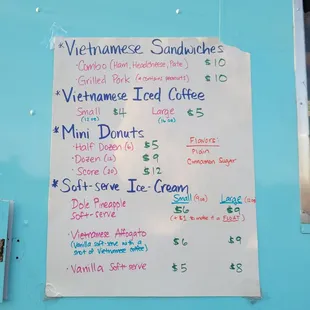 * Vietnamese Sandwiches
· Combo (Ham, Headcheese, Pate) $10
· Grilled Pork (*contains peanuts) $10
* Vietnamese Iced Coffee
Small $4 Large $5
(12 oz) (16 oz)
* Mini Donuts
· Half Dozen (6) $5
· Dozen (12) $9
· Score (20) $12
Flavors:
Plain
Cinnamon Sugar
* Soft-serve Ice-Cream
Small Large
Dole Pineapple $6 $9
soft-serve
(+ $1 to make it a FLOAT)
· Vietnamese Affogato $6 $9
(Vanilla soft-serve with a
shot of Vietnamese coffee)
· Vanilla Soft serve $5 $8